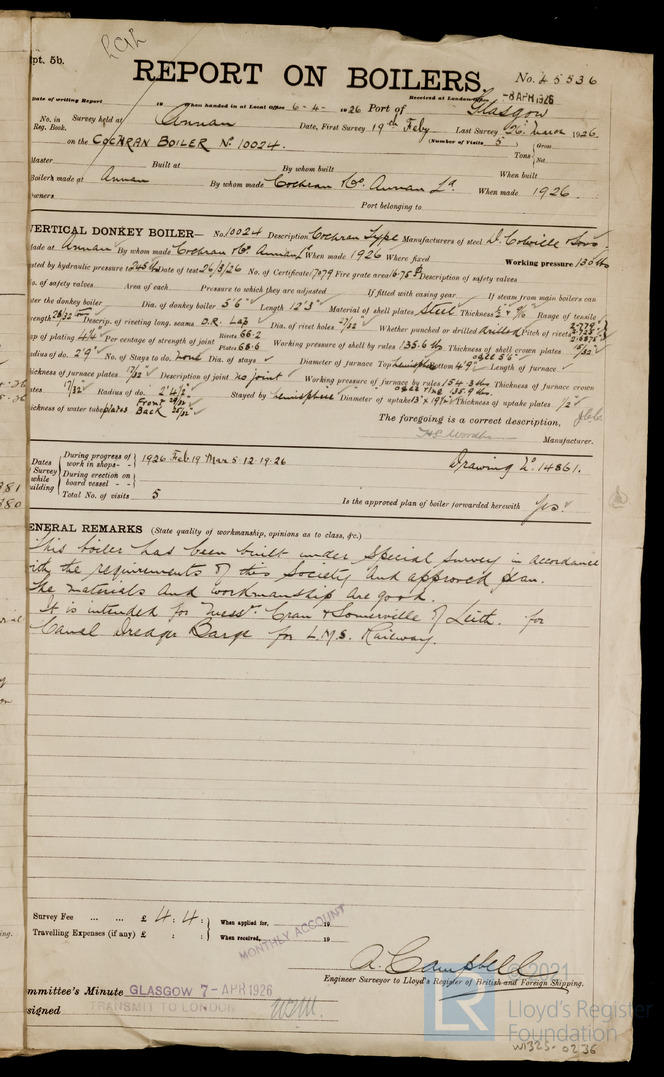 pt. 5b.
REPORT ON BOILERS.
No. 45536
Date of writing Report 19 When handed in at Local Office 6-4-1926 Port of Glasgow
Received at London Office -8 APR 1926
No. in Reg. Book. Survey held at Annan Date, First Survey 19th Feby Last Survey 26th March 1926.
on the COCHRAN BOILER No 10024. (Number of Visits 5) Tons { Gross Net
Master Built at By whom built When built
Boilers made at Annan By whom made Cochran & Co. Annan Ld When made 1926.
Owners Port belonging to
VERTICAL DONKEY BOILER— No. 10024 Description Cochran Type Manufacturers of steel D. Colville & Sons
Made at Annan By whom made Cochran & Co. Annan Ld When made 1926 Where fixed Working pressure 130 lbs
sted by hydraulic pressure to 245 lbs Date of test 26/3/26 No. of Certificate 7079 Fire grate area Description of safety valves
No. of safety valves Area of each Pressure to which they are adjusted If fitted with easing gear If steam from main boilers can
ter the donkey boiler Dia. of donkey boiler 5'6" Length 12'3" Material of shell plates Steel Thickness Range of tensile
rength 28/32 tons Descrip. of riveting long. seams D.R. Lap Dia. of rivet holes 27/32 Whether punched or drilled drilled Pitch of rivets
ap of plating Per centage of strength of joint Rivets 66.2 Plates 68.6 Working pressure of shell by rules 135.6 lbs Thickness of shell crown plates
adius of do. 2'9" No. of Stays to do. none Dia. of stays Diameter of furnace Top hemisphere Bottom 4'9" Length of furnace
hickness of furnace plates 17/32" Description of joint no joint Working pressure of furnace by rules 154.3 lbs Thickness of furnace crown
ates 17/32" Radius of do. 2'4½" Stayed by hemisphere Diameter of uptake Thickness of uptake plates 1/2"
hickness of water tube plates Front Back
The foregoing is a correct description,
Manufacturer.
Dates of Survey while building { During progress of work in shops - - 1926 Feb. 19 Mar 5. 12. 19. 26
During erection on board vessel - -
Total No. of visits 5
Drawing No 14861.
Is the approved plan of boiler forwarded herewith Yes.
GENERAL REMARKS (State quality of workmanship, opinions as to class, &c.)
This boiler has been built under Special Survey in accordance
with the requirements of this Society and approved plan.
The materials and workmanship are good.
It is intended for Messrs. Cran & Somerville of Leith. for
Canal Dredger Barge for L.M.S. Railway.
Survey Fee ... ... £ 4 : 4 : When applied for, 19
Travelling Expenses (if any) £ : : When received, 19
MONTHLY ACCOUNT
A. Campbell
Engineer Surveyor to Lloyd's Register of British and Foreign Shipping.
mmittee's Minute GLASGOW 7 - APR 1926
signed TRANSMIT TO LONDON
© 2021
Lloyd's Register
Foundation
W1325-0236